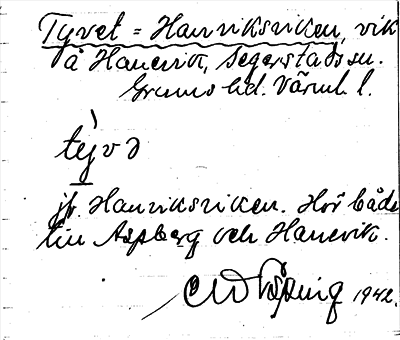 Tyvet = Hanviksviken, vik
å Hanevik, Segerstads sn.
Grums hd. Värml. l.
tývə
jfr. Hanviksviken. Hör både
till Aspberg och Hanevik.
1942.